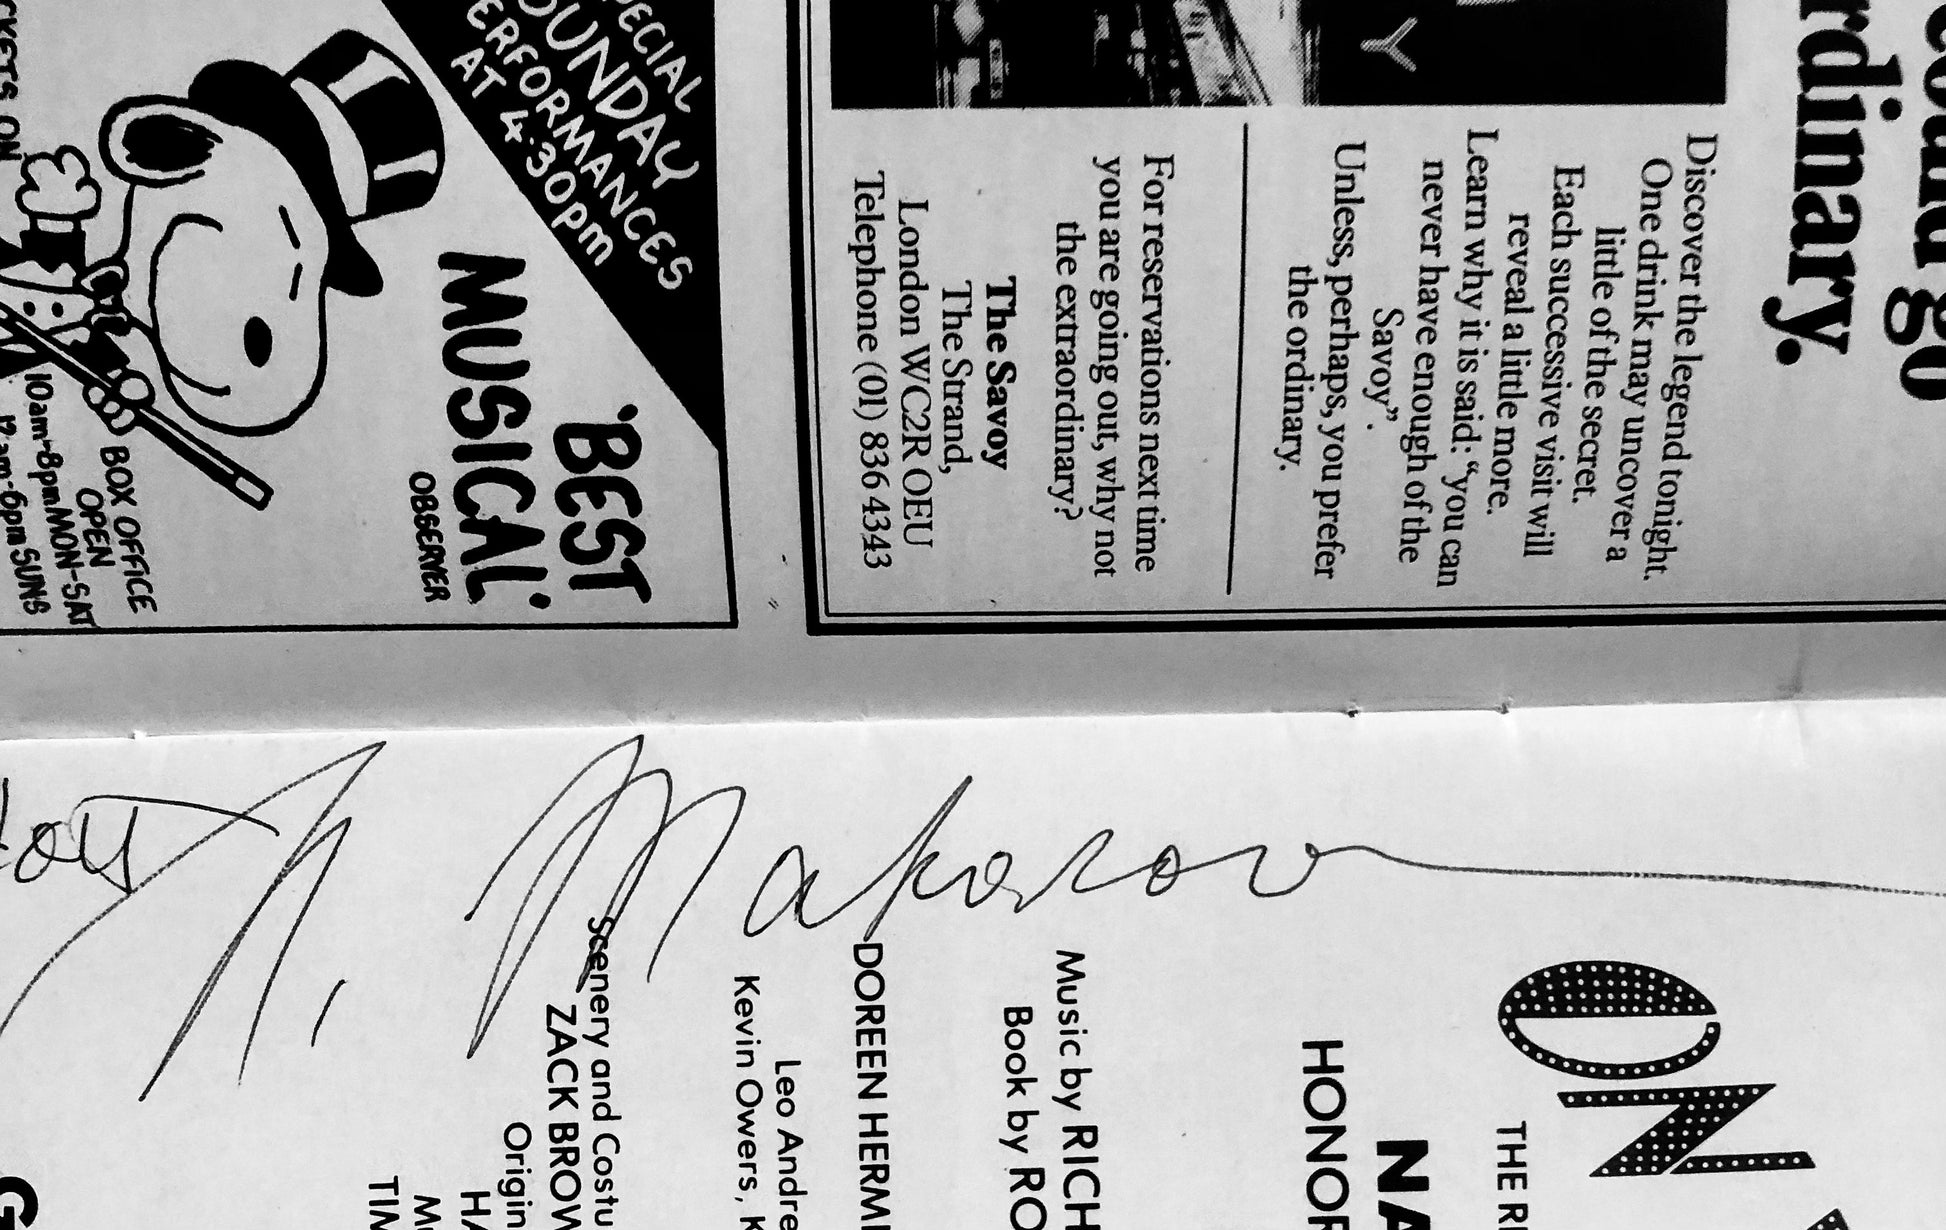 ould go
rdinary.
Discover the legend tonight.
One drink may uncover a
little of the secret.
Each successive visit will
reveal a little more.
Learn why it is said: “you can
never have enough of the
Savoy”.
Unless, perhaps, you prefer
the ordinary.
For reservations next time
you are going out, why not
the extraordinary?
The Savoy
The Strand,
London WC2R OEU
Telephone (01) 836 4343
PECIAL
SUNDAY
ERFORMANCES
AT 4·30pm
'BEST
MUSICAL'
OBSERVER
BOX OFFICE
OPEN
10am-8pm MON-SAT
12am-6pm SUNS
CKETS ON
N. Makarova
ON
THE RI
NA
HONOR
Music by RICH
Book by RO
DOREEN HERMI
Leo Andre
Kevin Owers, K
Scenery and Costu
ZACK BROW
Origin
HA
Mu
TIM
G